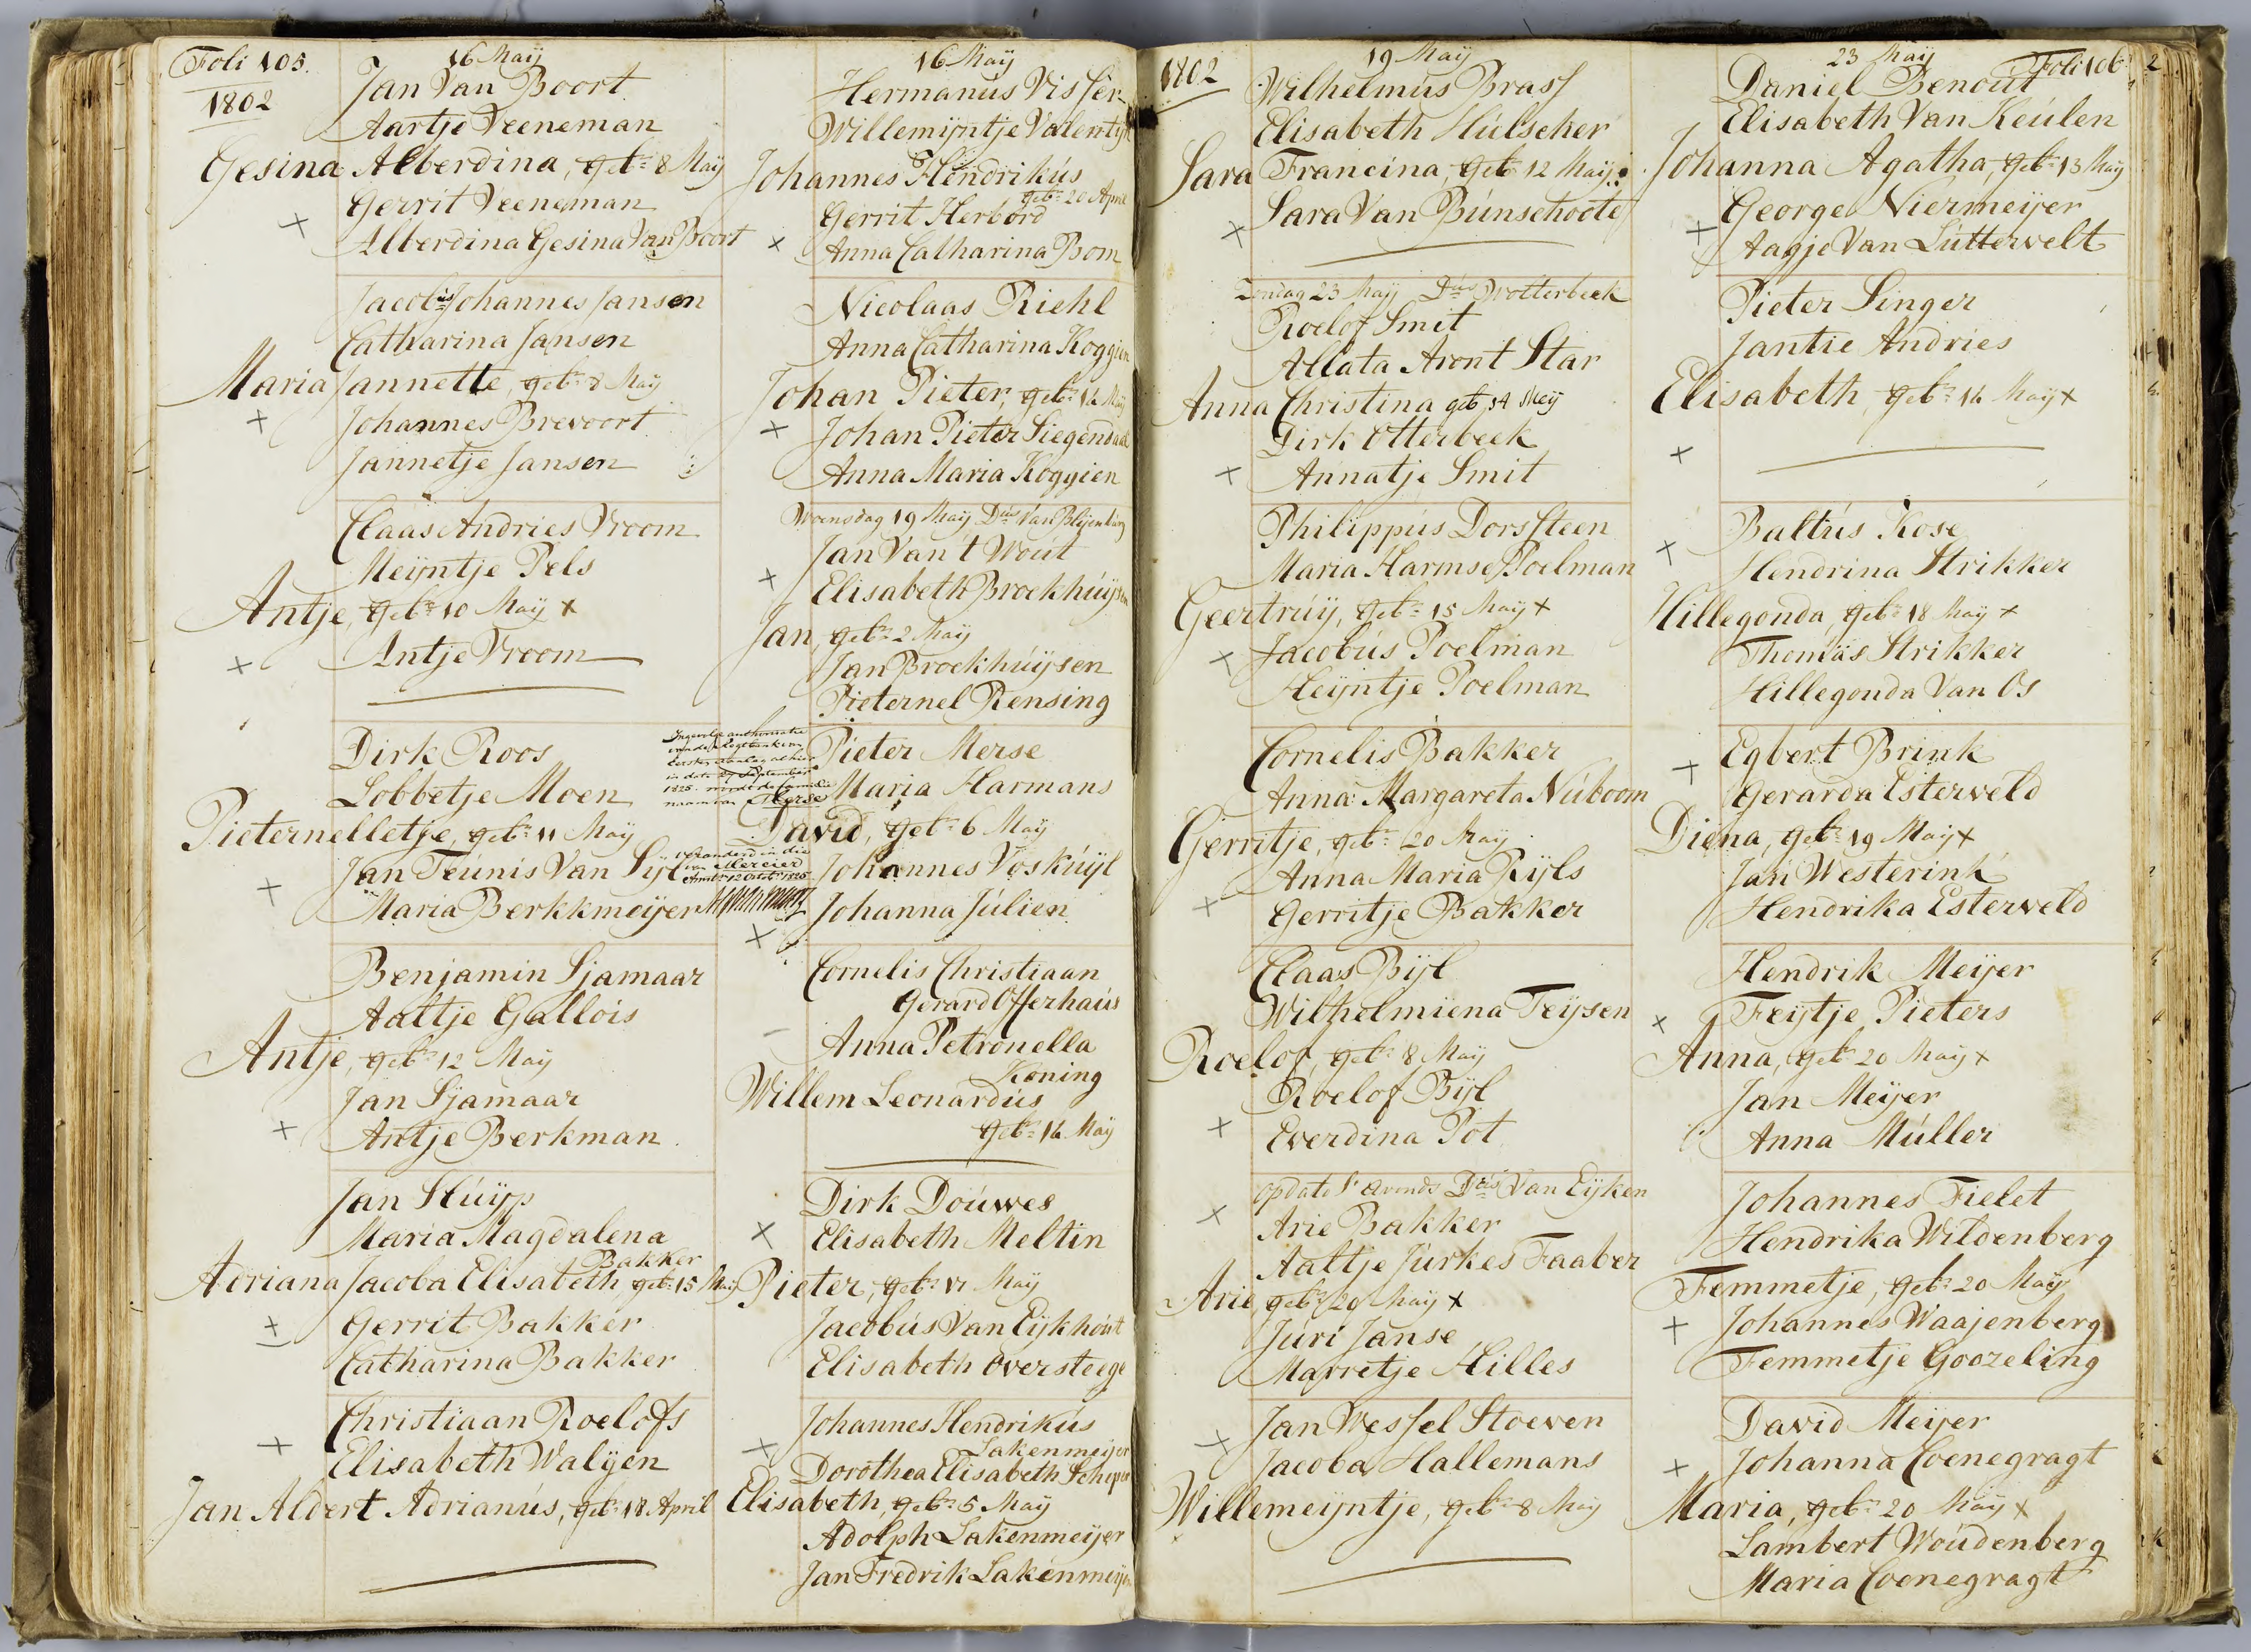 Foli 105.
1802
16 Maij
Jan Van Boort
Aartje Veeneman
Gesina Alberdina, geb:n 8 Maij
Gerrit Veeneman
Alberdina Gesina Van Boort
Jacobus Johannes Jansen
Catharina Jansen
Maria Jannette, geb:n 8 Maij
Johannes Brevoort
Jannetje Jansen
Claas Andries Vroom
Meijntje Pels
Antje, geb:n 10 Maij x
Antje Vroom
Dirk Roos
Lobbetje Moen
Pieternelletje, geb:n 11 Maij
Jan Teunis Van Sijl
Maria Berkkmeijer
Benjamin Sjamaar
Aaltje Gallois
Antje, geb:n 12 Maij
Jan Sjamaar
Antje Berkman
Jan Stuijp
Maria Magdalena
Bakker
Adriana Jacoba Elisabeth, geb:n 15 Maij
Gerrit Bakker
Catharina Bakker
Christiaan Roelofs
Elisabeth Walijen
Jan Aldert Adrianus, geb:n 18 April
16 Maij
Hermanus Visser
Willemijntje Valentijn
Johannes Hendrikus
geb:n 20 April
Gerrit Herbord
Anna Catharina Bom
Nicolaas Riehl
Anna Catharina Koggien
Johan Pieter, geb:n 14 Maij
Johan Pieter Siegendaal
Anna Maria Koggien
Woensdag 19 Maij Dus Van Blijenburg
Jan Van 't Wout
Elisabeth Broekhuijsen
Jan, geb:n 2 Maij
Jan Broekhuijsen
Pieternel Rensing
Ingevolge authorisatie
van de Regtbank van
Eersten Aanleg alhier
in dato 27 September
1825 wordt de familie
naam van Merse
Pieter Merse
Maria Harmans
David, geb:n 6 Maij
veranderd in die
van Mercier
Amst: 12 Octob: 1825
Johannes Voskuijl
Johanna Julien
Cornelis Christiaan
Gerard Offerhaus
Anna Petronella
Koning
Willem Leonardus
geb:n 14 Maij
Dirk Douwes
Elisabeth Meltin
Pieter, geb:n 17 Maij
Jacobus Van Eijkhout
Elisabeth Oversteege
Johannes Hendrikus
Lakenmeijer
Dorothea Elisabeth
Elisabeth, geb:n 5 Maij
Adolph Lakenmeijer
Jan Fredrik Lakenmeijer
1802
19 Maij
Wilhelmus Brass
Elisabeth Hulscher
Sara Francina, geb:n 12 Maij
Sara Van Bunschoote
Zondag 23 Maij Dus Wolterbeek
Roelof Smit
Allata Aront Star
Anna Christina geb 14 Meij
Dirk Otterbeek
Annatje Smit
Philippus Dorssteen
Maria Harmse Poelman
Geertruij, geb:n 15 Maij x
Jacobus Poelman
Heijntje Poelman
Cornelis Bakker
Anna Margareta Nuboom
Gerritje, geb:n 20 Maij
Anna Maria Rijls
Gerritje Bakker
Claas Bijl
Wilhelmiena Teijsen
Roelof, geb:n 8 Maij
Roelof Bijl
Everdina Pot
Op dato S' avonds Dus Van Eijken
Arie Bakker
Aaltje Jurkes Faaber
Arie, geb:n 20 Maij x
Juri Janse
Marretje Hilles
Jan Wessel Stoeven
Jacoba Hallemans
Willemeijntje, geb:n 8 Maij
23 Maij
Foli 106
Daniel Benout
Elisabeth Van Keulen
Johanna Agatha, geb:n 13 Maij
George Niermeijer
Aagje Van Luttervelt
Pieter Singer
Jantie Andries
Elisabeth, geb:n 14 Maij x
Baltus Kose
Hendrina Strikker
Hillegonda, geb:n 18 Maij x
Thomas Strikker
Hillegonda Van Os
Egbert Brink
Gerarda Esterveld
Diena, geb:n 19 Maij x
Jan Westerink
Hendrika Esterveld
Hendrik Meijer
Feijtje Pieters
Anna, geb:n 20 Maij x
Jan Meijer
Anna Muller
Johannes Fielet
Hendrika Wildenberg
Femmetje, geb:n 20 Maij
Johannes Waajenberg
Femmetje Goozeling
David Meijer
Johanna Coenegragt
Maria, geb:n 20 Maij x
Lambert Woudenberg
Maria Coenegragt